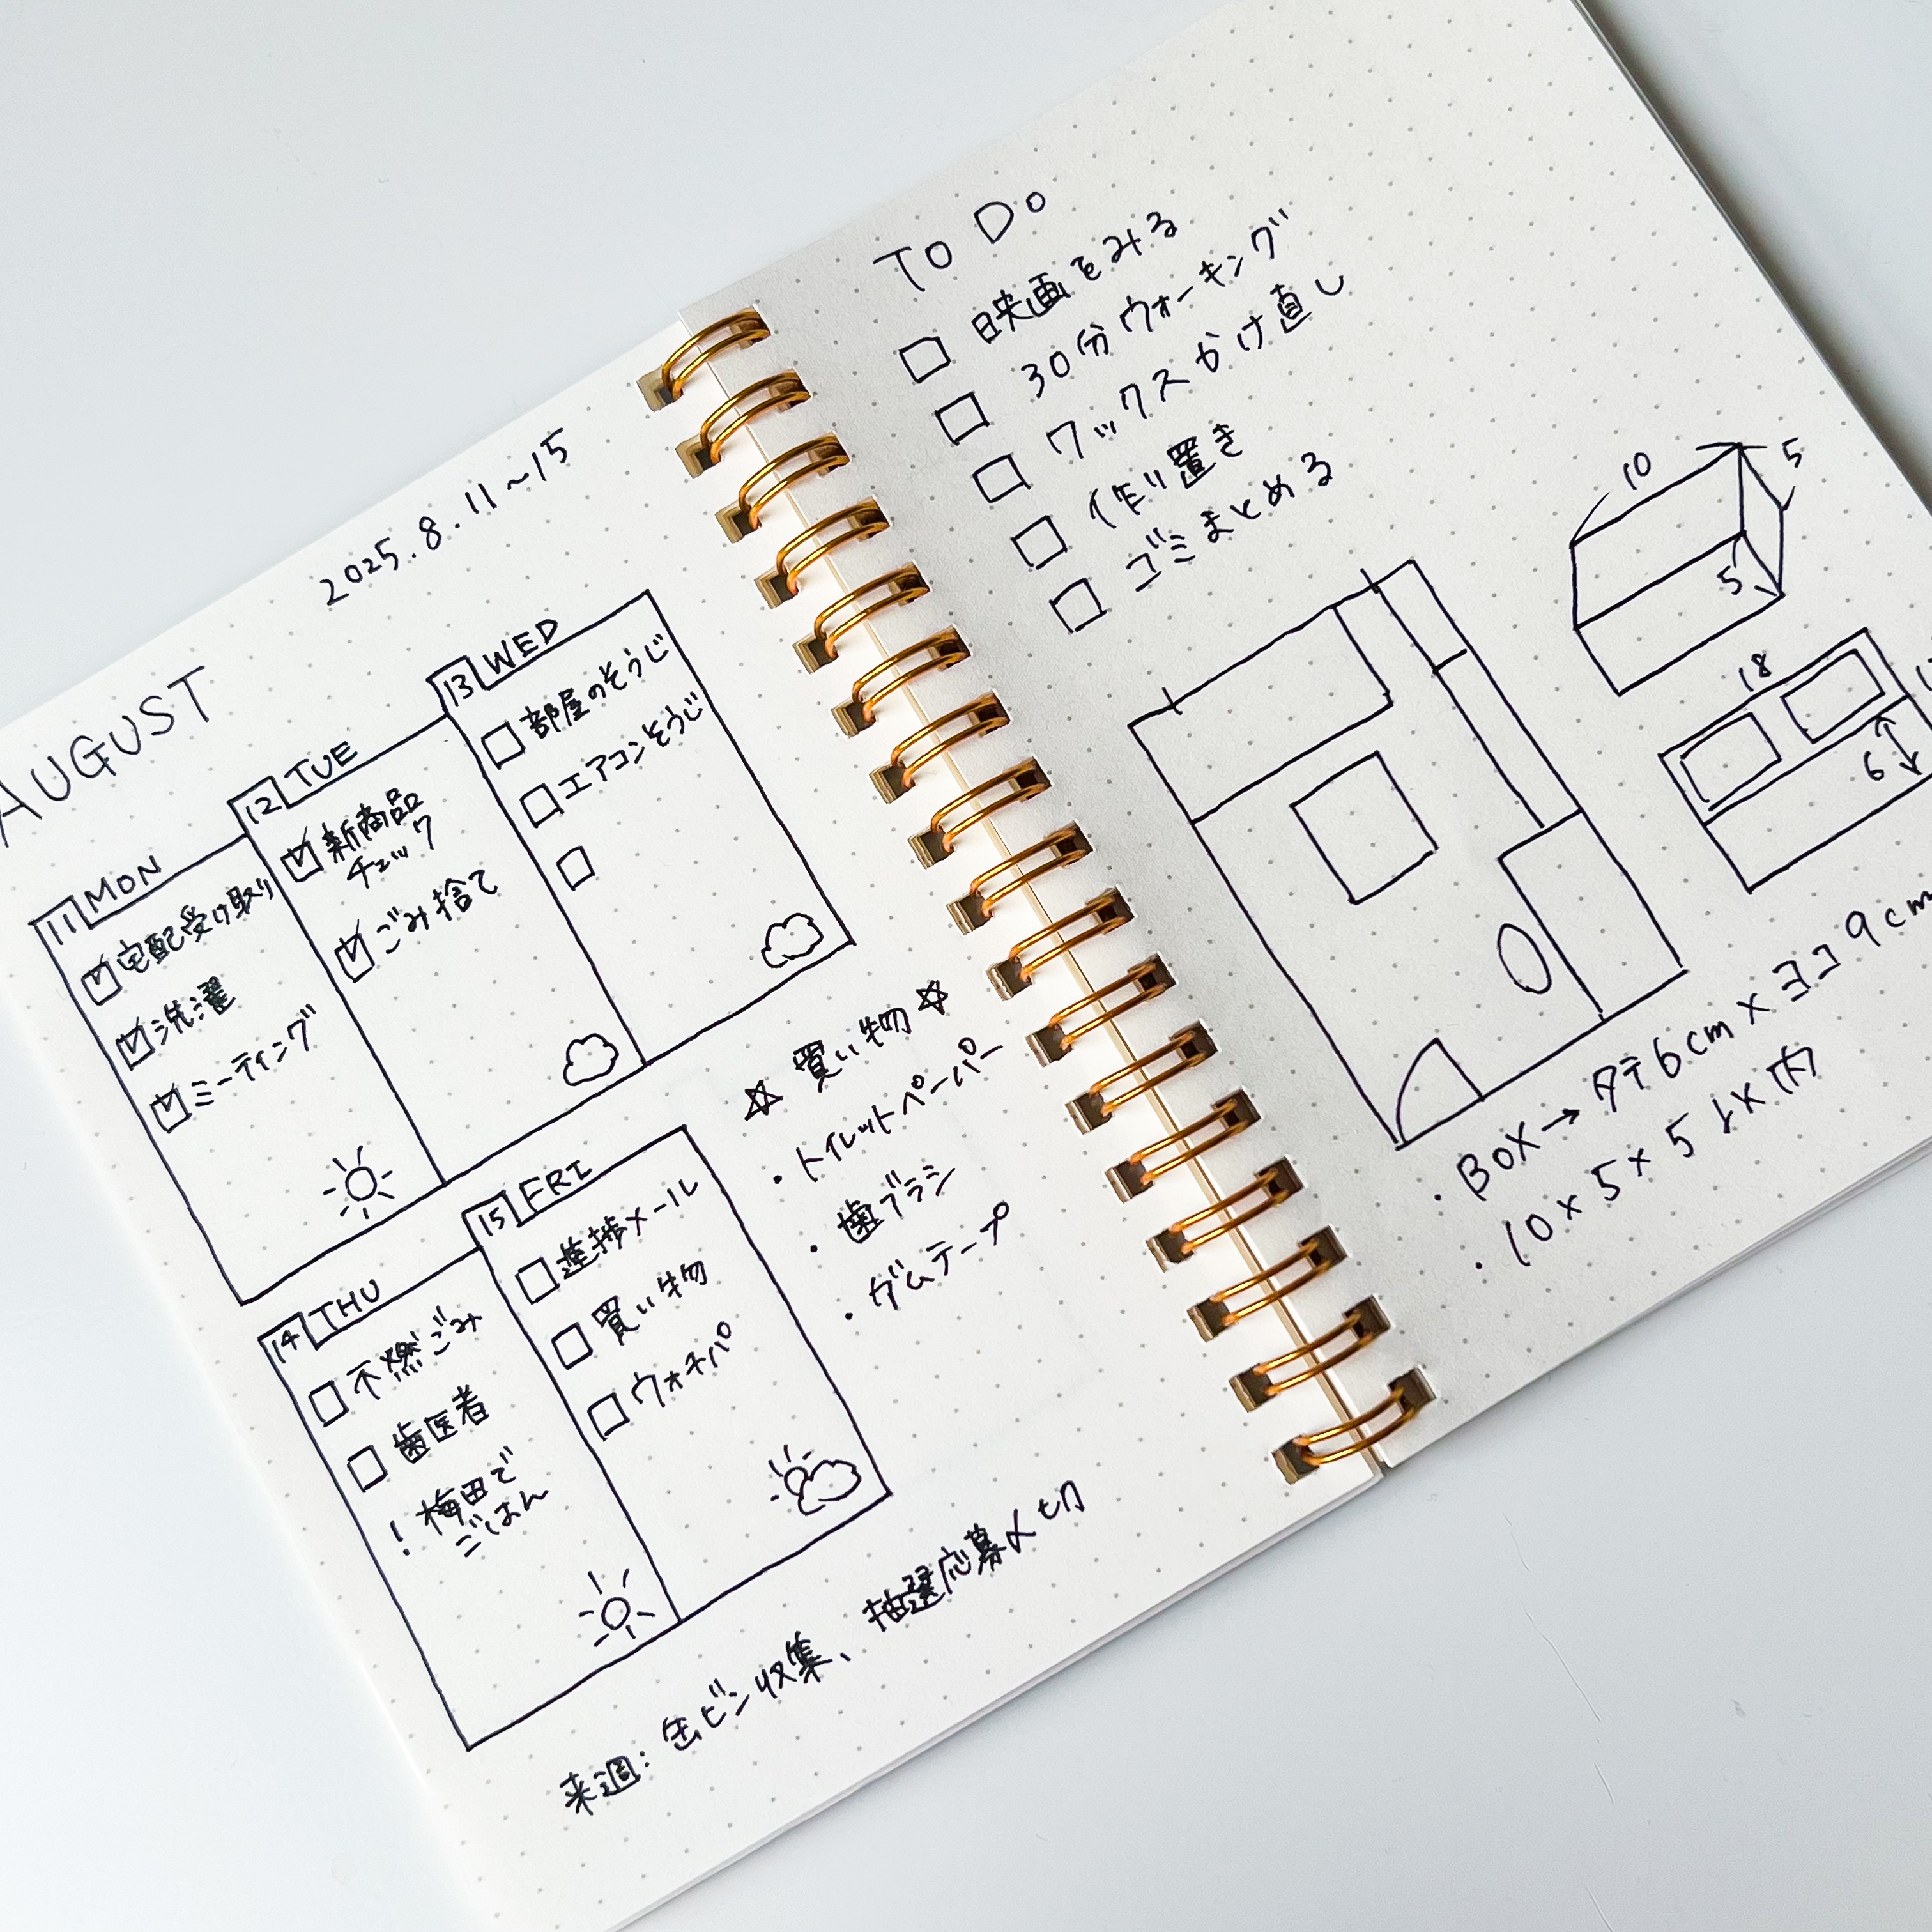 AUGUST
2025.8.11~15
11 MON
宅配受け取り
洗濯
ミーティング
12 TUE
新商品
チェック
ごみ捨て
13 WED
部屋のそうじ
エアコンそうじ
14 THU
不燃ごみ
歯医者
! 梅田で
ごはん
15 FRI
進捗メール
買い物
ウォチパ
☆ 買い物 ☆
・トイレットペーパー
・歯ブラシ
・ガムテープ
来週: 缶ビン収集、抽選応募〆切
To Do
映画をみる
30分ウォーキング
ワックスかけ直し
作り置き
ゴミまとめる
10
5
5
18
6
・BOX→タテ6cm×ヨコ9cm
・10×5×5以内